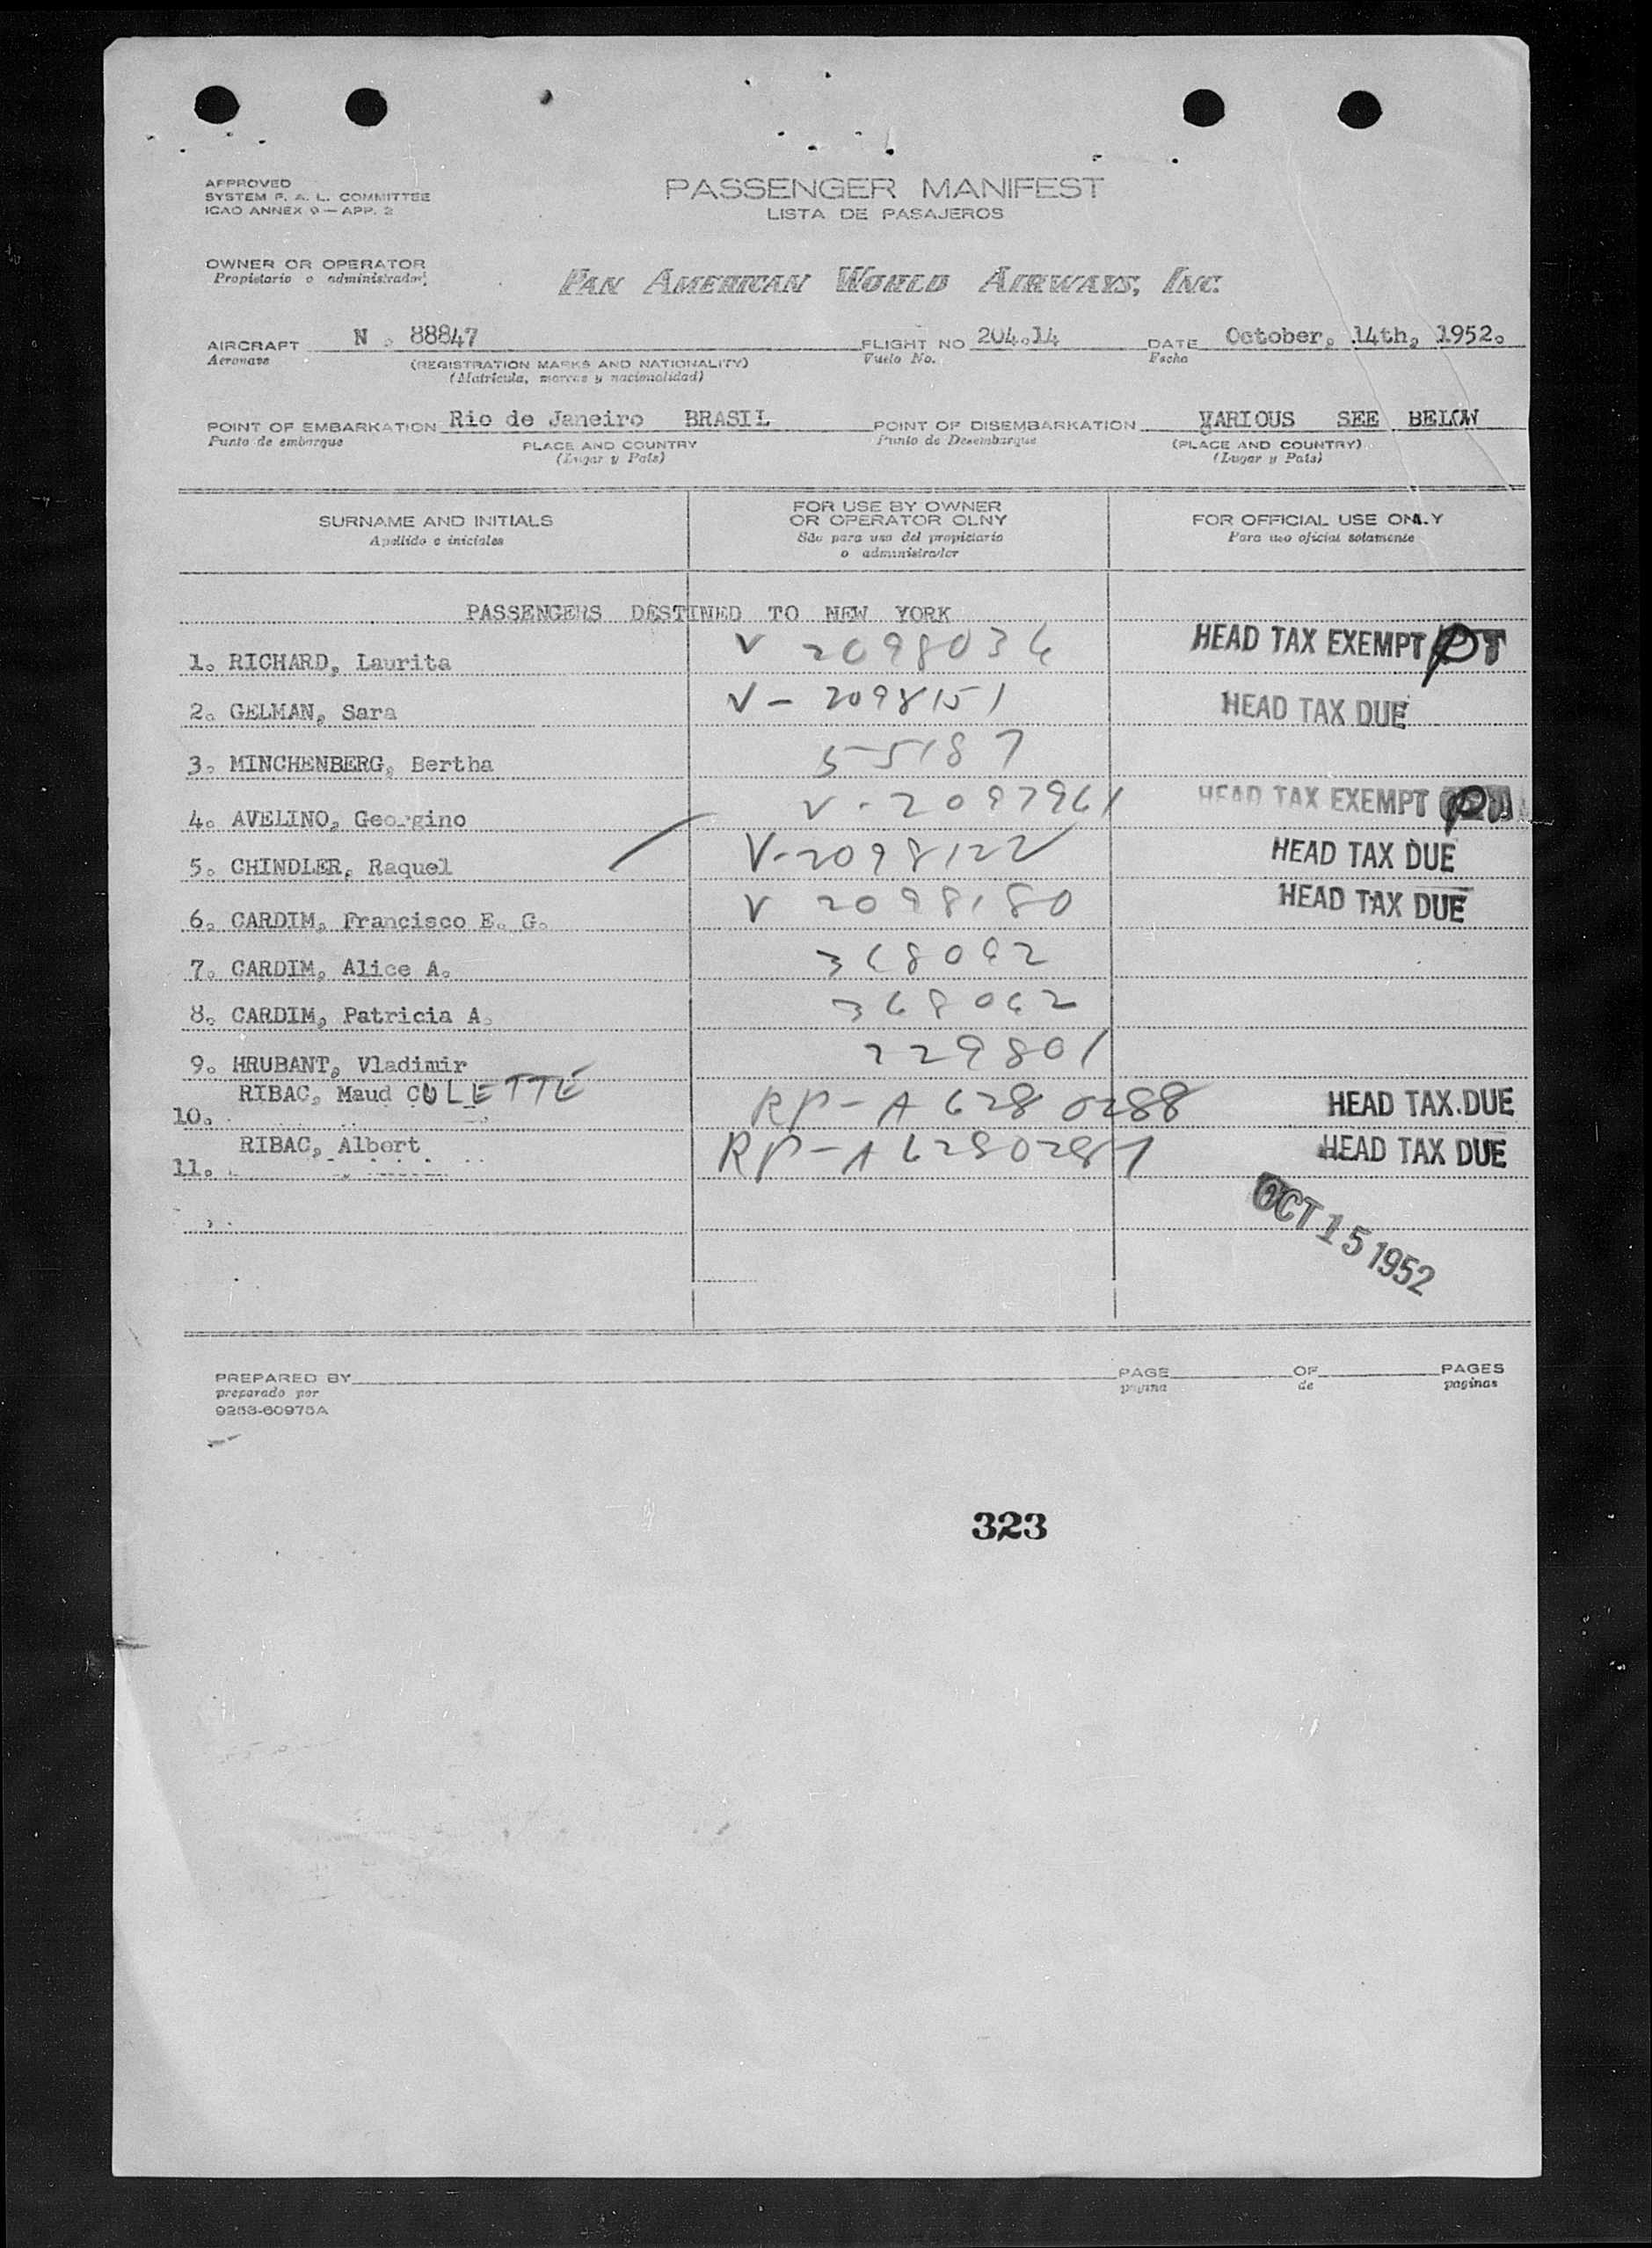 APPROVED
SYSTEM F. A. L. COMMITTEE
ICAO ANNEX 9 — APP. 2
PASSENGER MANIFEST
LISTA DE PASAJEROS
OWNER OR OPERATOR
Propietario o administrador
PAN AMERICAN WORLD AIRWAYS, INC.
AIRCRAFT N. 88847 FLIGHT NO 204.14 DATE October, 14th, 1952.
Aeronave (REGISTRATION MARKS AND NATIONALITY) Vuelo No. Fecha
(Matricula, marcas y nacionalidad)
POINT OF EMBARKATION Rio de Janeiro BRASIL POINT OF DISEMBARKATION VARIOUS SEE BELOW
Punto de embarque PLACE AND COUNTRY Punto de Desembarque (PLACE AND COUNTRY)
(Lugar y Pais) (Lugar y Pais)
SURNAME AND INITIALS FOR USE BY OWNER OR OPERATOR OLNY FOR OFFICIAL USE ONLY
Apellido e iniciales Sdo para uso del propietario o administrador Para uso oficial solamente
PASSENGERS DESTINED TO NEW YORK
1. RICHARD, Laurita V 2098036 HEAD TAX EXEMPT
2. GELMAN, Sara V - 2098151 HEAD TAX DUE
3. MINCHENBERG, Bertha 55187
4. AVELINO, Georgino V - 2097961 HEAD TAX EXEMPT
5. CHINDLER, Raquel V-2098122 HEAD TAX DUE
6. CARDIM, Francisco E. G. V 2098180 HEAD TAX DUE
7. CARDIM, Alice A. 368062
8. CARDIM, Patricia A. 368062
9. HRUBANT, Vladimir 229801
10. RIBAC, Maud COLETTE RP-A 6280288 HEAD TAX DUE
11. RIBAC, Albert RP-A 6280287 HEAD TAX DUE
OCT 15 1952
PREPARED BY PAGE OF PAGES
preparado por pagina de paginas
9253-60975A
323